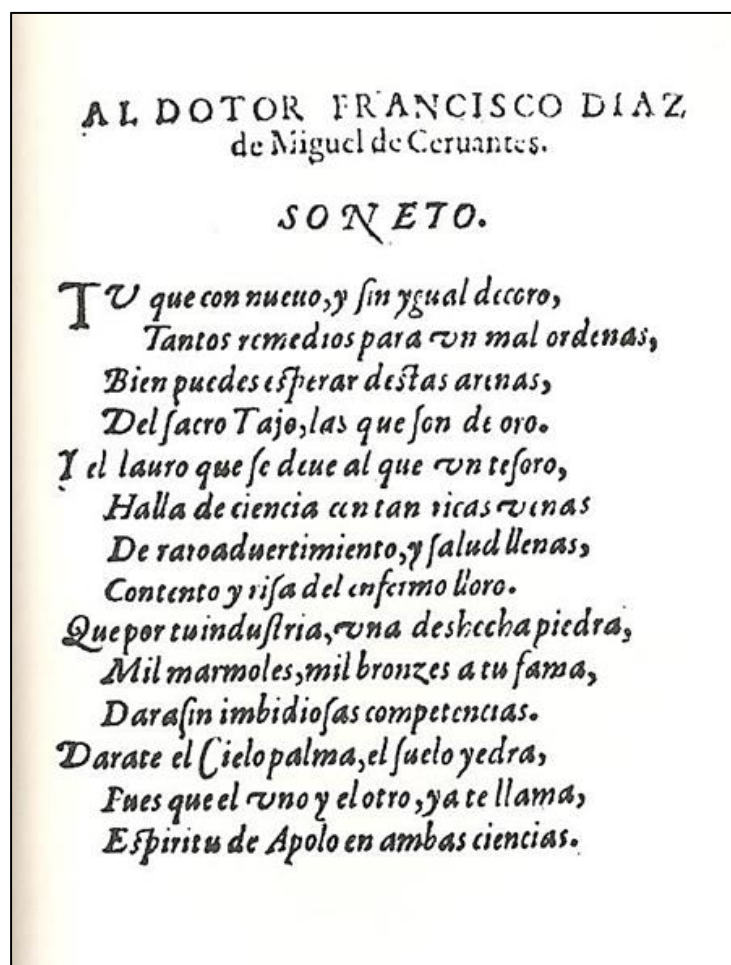 AL DOTOR FRANCISCO DIAZ
de Miguel de Ceruantes.
SONETO.
TV que con nueuo, y ſin ygual decoro,
Tantos remedios para vn mal ordenas,
Bien puedes eſperar deſtas arenas,
Del ſacro Tajo, las que ſon de oro.
Y el lauro que ſe deue al que vn teſoro,
Halla de ciencia con tan ricas venas
De raro aduertimiento, y ſalud llenas,
Contento y riſa del enfermo lloro.
Que por tu induſtria, vna deshecha piedra,
Mil marmoles, mil bronzes a tu fama,
Dara ſin imbidioſas competencias.
Darate el Cielo palma, el ſuelo yedra,
Pues que el vno y el otro, ya te llama,
Eſpiritu de Apolo en ambas ciencias.